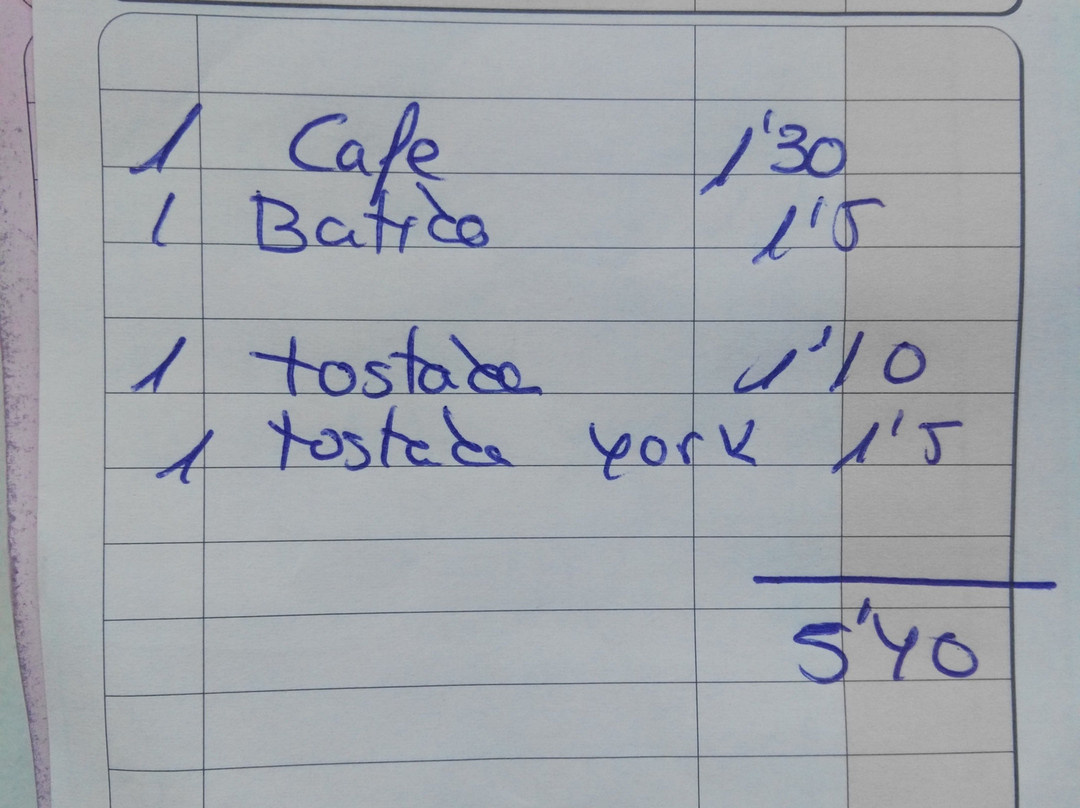 1 Cafe 1'30
1 Batido 1'5
1 tostada 1'10
1 tostada york 1'5
5'40